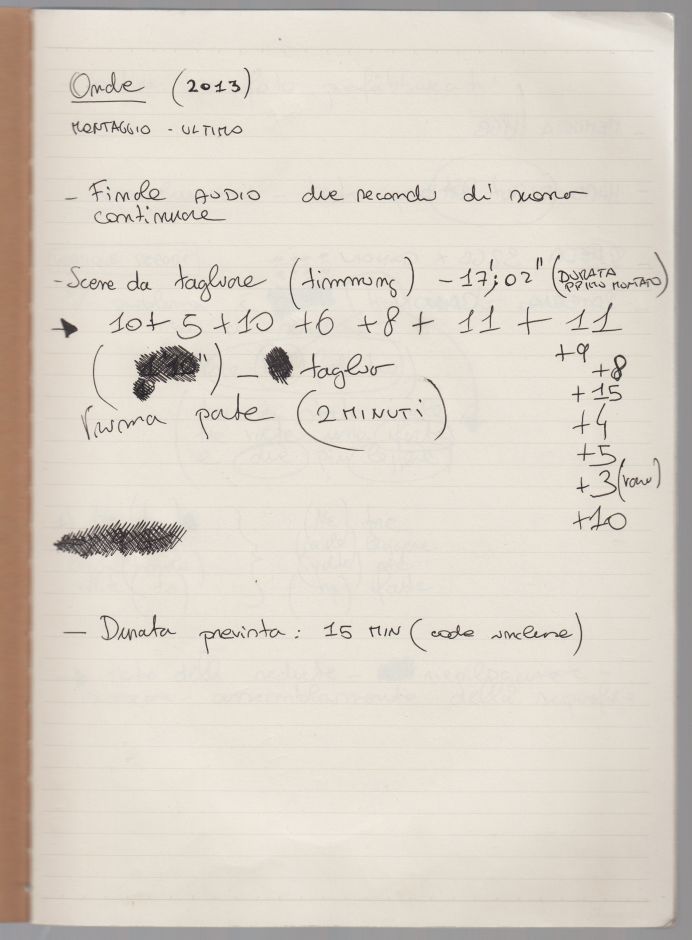 Onde (2013)
MONTAGGIO - ULTIMO
- Finale AUDIO due secondi di suono
continuare
- Scene da tagliare (timming) - 17';02" (DURATA
PRIMO MONTATO)
10+5+10 +6 +8+ 11 + 11
+9
+8
(1'10") - taglio
+15
Prima parte (2 MINUTI)
+4
+5
+3
+10
- Durata prevista: 15 MIN (code incluse)